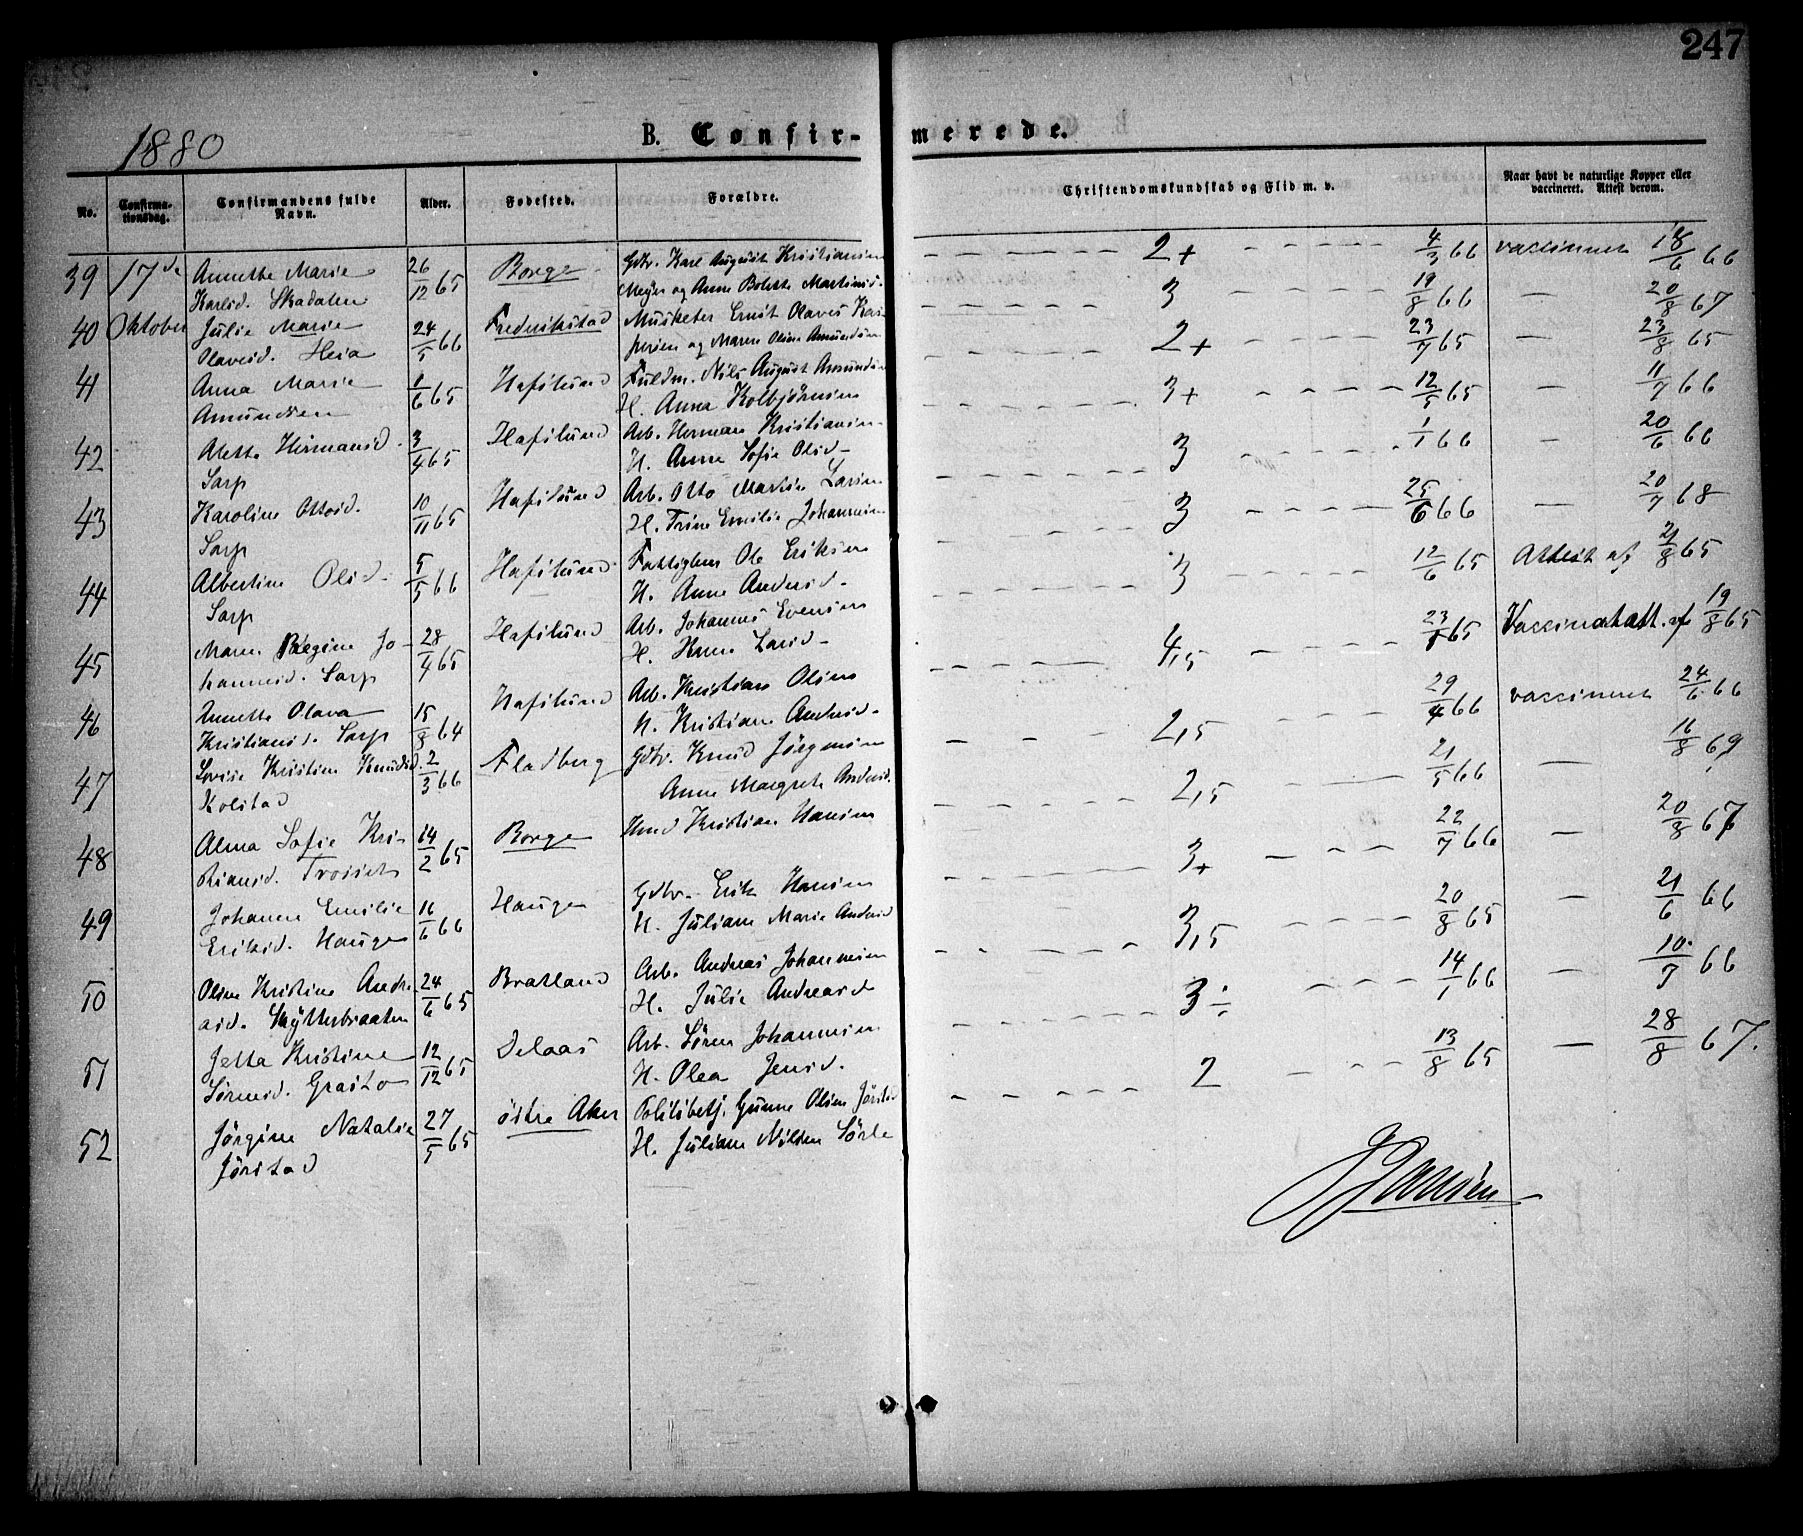 247
1880
B. Confir-merede.
No. Confirmationsdag. Confirmandens fulde Navn. Alder. Fødested. Forældre. Christendomskundskab og Flid m. v. Naar havt de naturlige Kopper eller vaccineret. Attest derom.
39 17de Annette Marie 26/12 65 Borge Gdbr. Karl August Kristiansen 2+ 4/3 66 vaccineret 18/6 66
Karlsd. Skadalen Meyer og Anne Bolette Martinsd.
40 Oktober Julie Marie 24/5 66 Fredrikstad Musketer Ernst Olaves Kas- 3 19/8 66 — 20/8 67
Olavesd. Heia persen og Maren Oline Amundsen
41 Anna Marie 1/6 65 Hafslund Fuldm. Nils August Amundsen 2+ 23/7 65 — 23/8 65
Amundsen H. Anna Kolbjørnsen
42 Alette Hermansd. 3/4 65 Hafslund Arb. Herman Kristiansen 3+ 12/5 65 — 11/7 66
Sarp H. Anne Sofie Olsd.
43 Karoline Ottosd. 10/11 65 Hafslund Arb. Otto Martin Larsen 3 1/1 66 — 20/6 66
Sarp H. Trine Emilie Johannesen
44 Albertine Olsd. 5/5 66 Hafslund Fattiglem Ole Eriksen 3 25/6 66 — 20/7 68
Sarp H. Anne Andersd.
45 Maren Regine Jo- 28/4 65 Hafslund Arb. Johannes Evensen 3 12/6 65 Attest af 21/8 65
hannesd. Sarp H. Larsd.
46 Annette Olava 15/8 64 Hafslund Arb. Kristian Olsen 4,5 65 Vaccinatatt. af 19/8 65
Kristiansd. Sarp H. Kristiane Andersd.
47 Lovise Kristine Knudsd. 2/3 66 Fladberg Gdbr. Knud Jørgensen 2,5 29/4 66 vaccineret 24/6 66
Kolstad Anne Margrete Andersd.
48 Alma Sofie Kri- 14/2 65 Borge Hmd Kristian Hansen 2,5 21/5 66 — 16/8 69
stiansd.
49 Johanne Emilie 16/6 66 Haugen Gdbr. Erik Hansen 3+ 22/7 66 — 20/8 67
Eriksd. Haugen H. Juliane Marie Andersd
50 Oline Kristine Andre- 24/6 65 Bratland Arb. Andreas Johannesen 3,5 20/8 65 — 21/6 66
asd. Skytterbraaten H. Julie Andreasd
51 Jetta Kristine 12/12 65 Delaas Arb. Søren Johannesen 3÷ 14/1 66 — 10/7 66
Sørensd. Grasto H. Olea Jensd.
52 Jørgine Natalie 27/5 65 østre Aker Politibetj. Gunne Olsen Jørstad 2 13/8 65 — 28/8 67.
Jørstad H. Juliane Nilsen Sørle